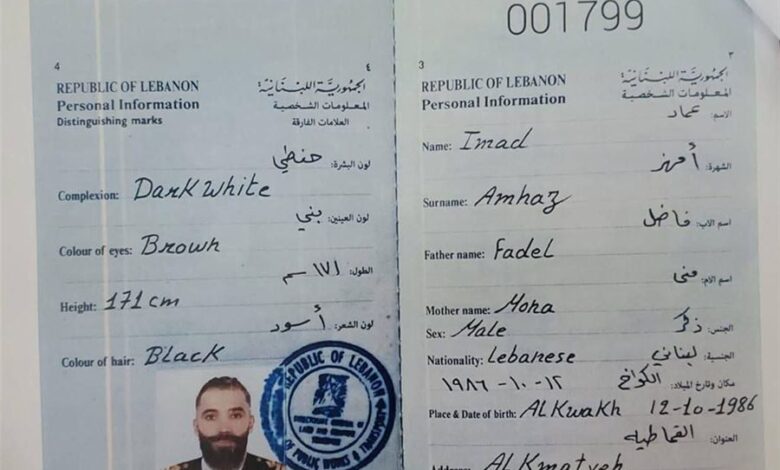 4
٤
REPUBLIC OF LEBANON
الجمهوريّة اللبنانيّة
Personal Information
المعلومات الشخصية
Distinguishing marks
العلامات الفارقة
لون البشرة: حنطي
Complexion: Dark White
لون العينين: بني
Colour of eyes: Brown
الطول: ١٧١ سم
Height: 171 cm
لون الشعر: أسود
Colour of hair: Black
REPUBLIC OF LEBANON
OF PUBLIC WORKS & TRANSPORT
001799
3
٣
REPUBLIC OF LEBANON
الجمهوريّة اللبنانيّة
Personal Information
المعلومات الشخصية
الاسم: عماد
Name: Imad
الشهرة: أمهز
Surname: Amhaz
اسم الاب: فاضل
Father name: Fadel
اسم الام: منى
Mother name: Mona
الجنس: ذكر
Sex: Male
الجنسية: لبناني
Nationality: Lebanese
مكان وتاريخ الميلاد: الكواخ ١٢-١٠-١٩٨٦
Place & Date of birth: AL Kwakh 12-10-1986
العنوان: القماطية
Address: AL Kmatyeh